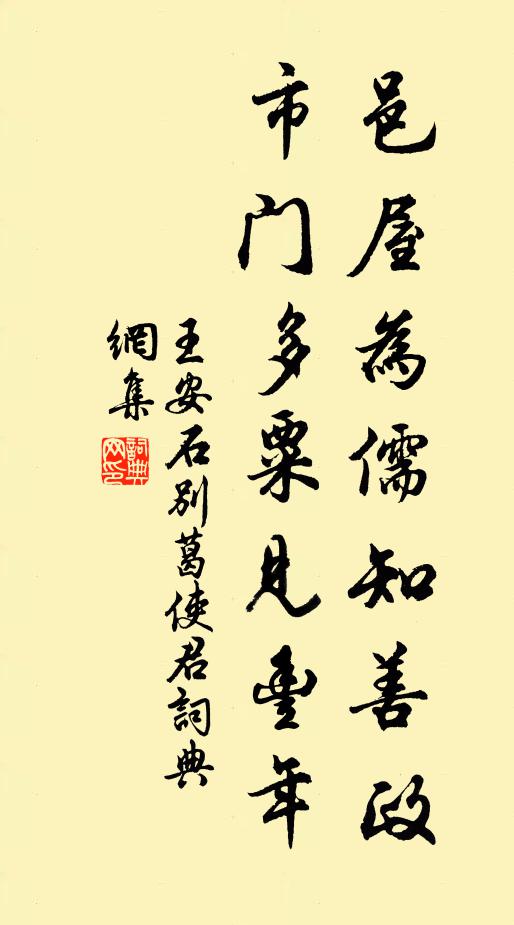 邑屋為儒知善政
市門多粟見豐年
王安石別葛使君詞典
網集
詞典網印